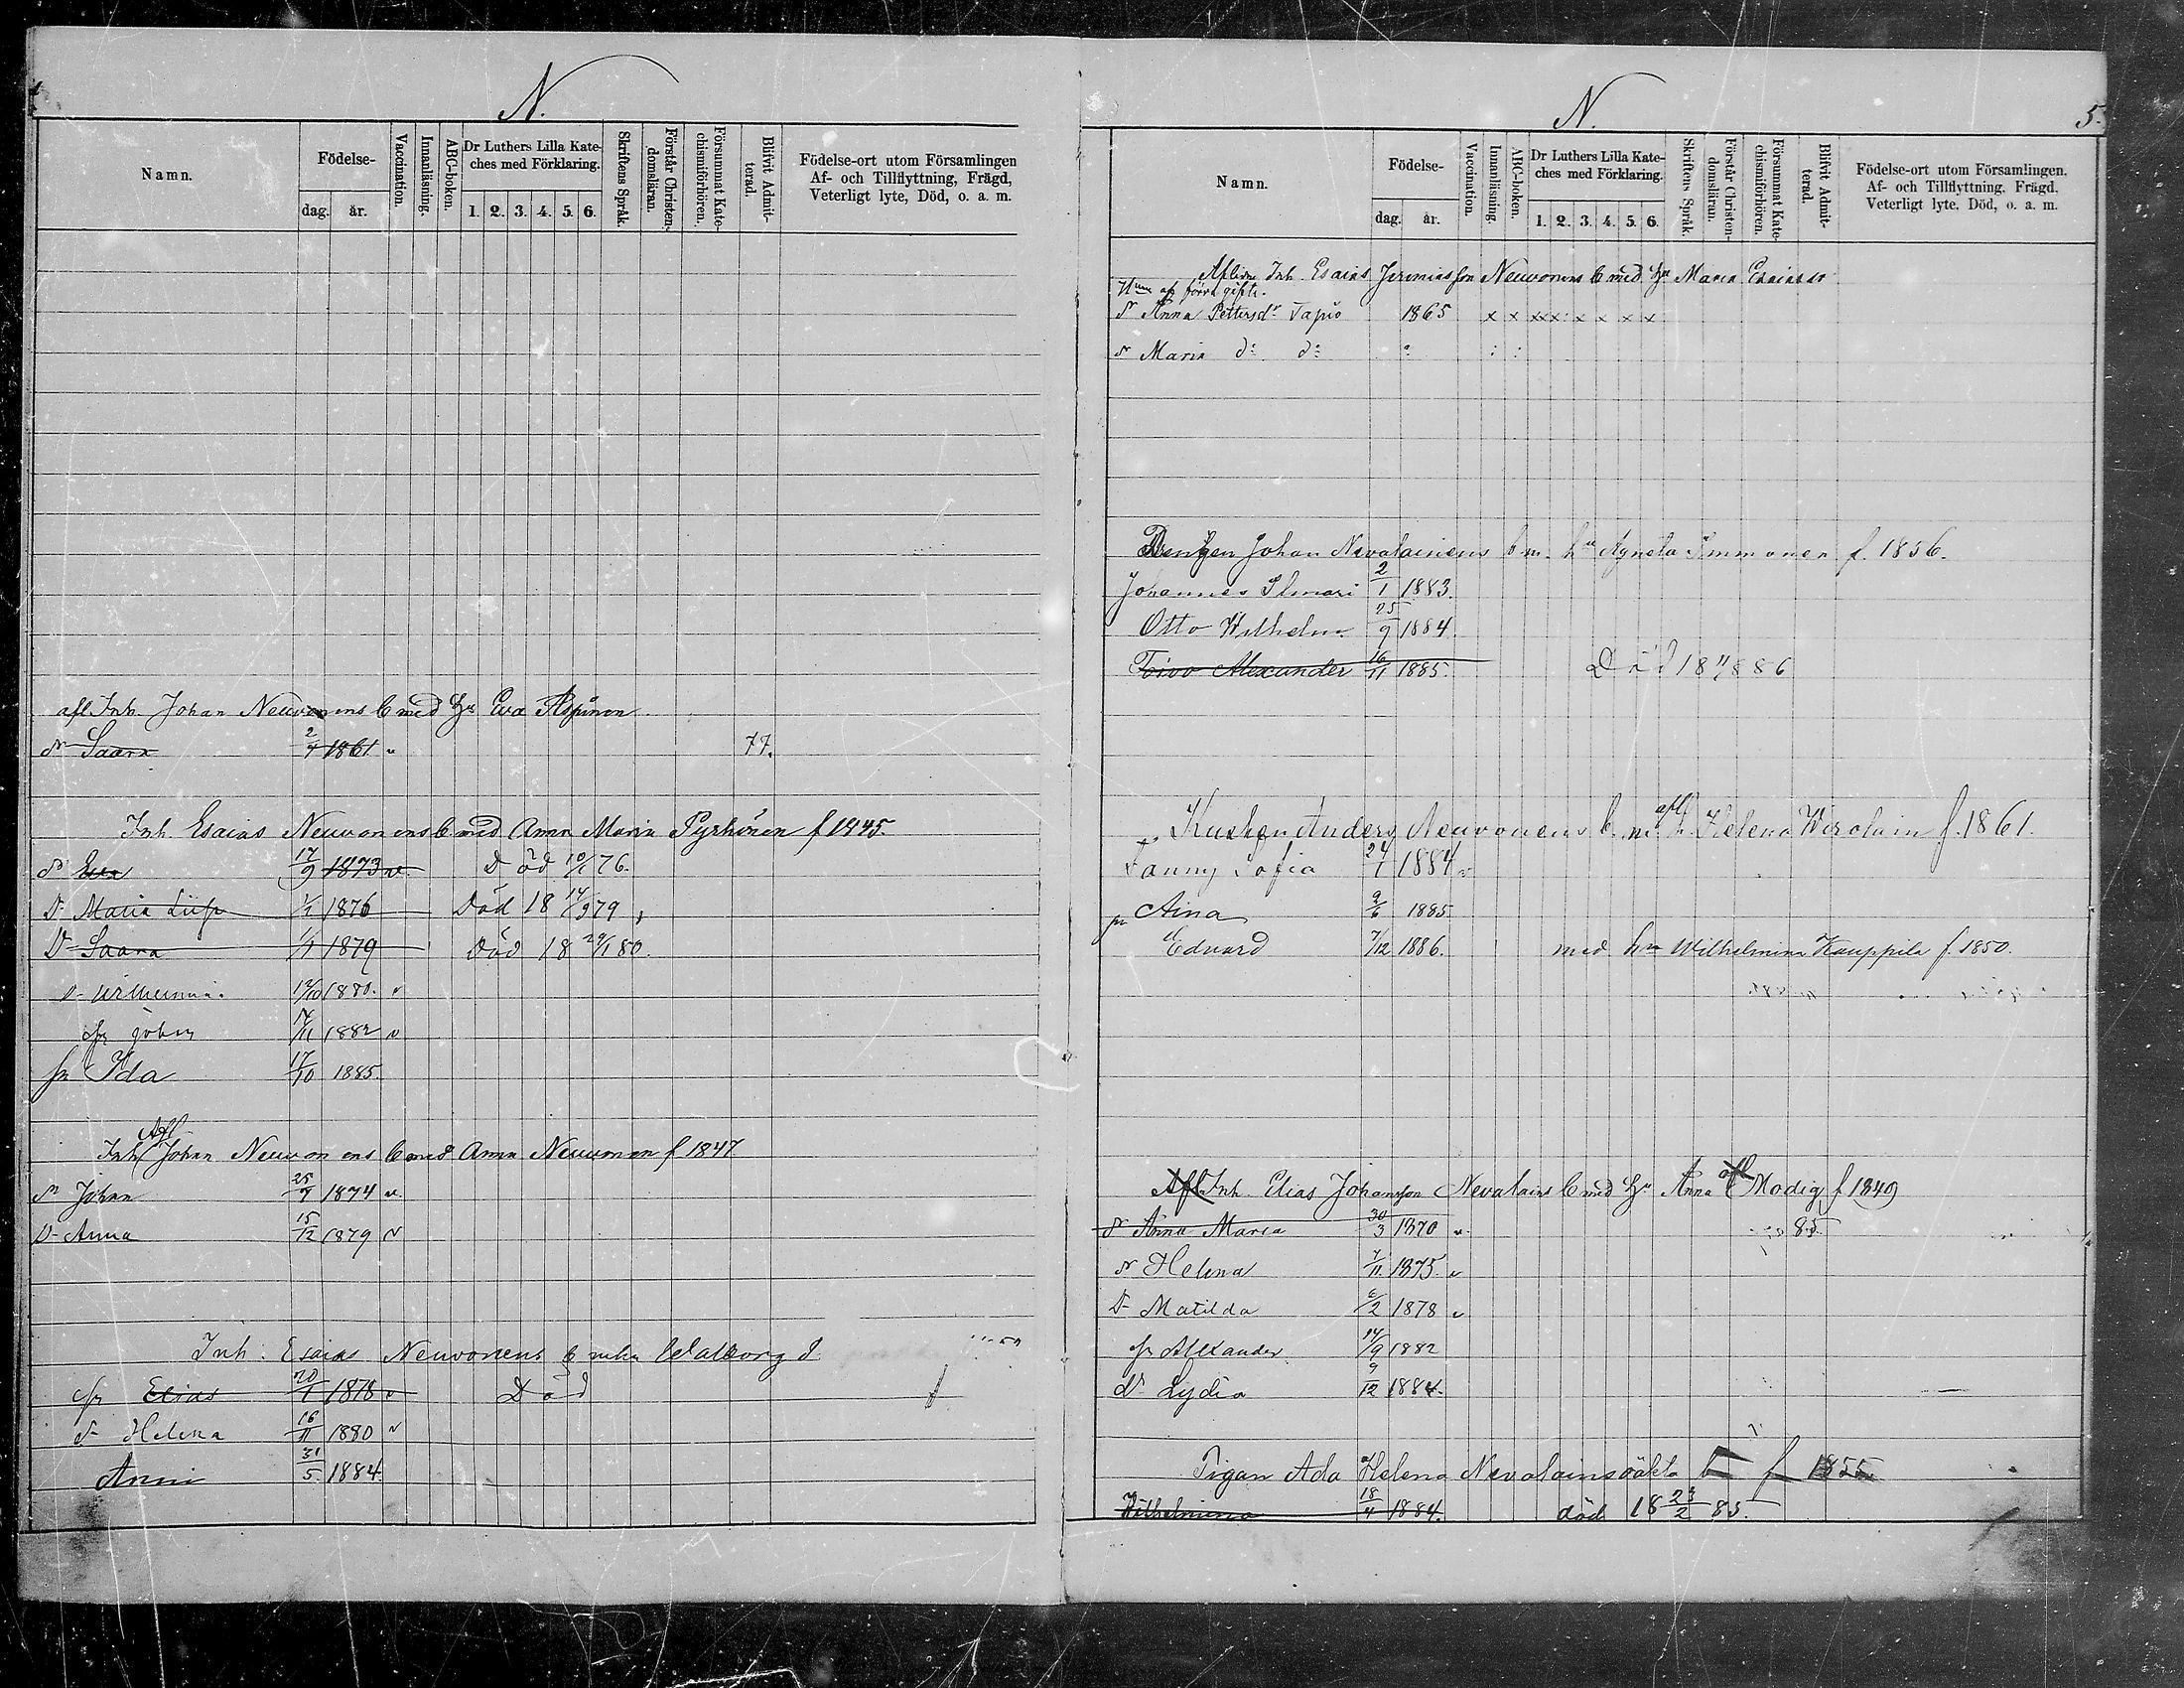 N.
Namn.
Födelse-
dag. år.
Vaccination.
Innanläsning.
ABC-boken.
Dr Luthers Lilla Kate-
ches med Förklaring.
1. 2. 3. 4. 5. 6.
Skriftens Språk.
Förstår Christen-
domsläran.
Försummat Kate-
chismiförhören.
Blifvit Admit-
terad.
Födelse-ort utom Församlingen
Af- och Tillflyttning, Frägd,
Veterligt lyte, Död, o. a. m.
afl Inh. Johan Neuvonens b med Eva
Saara 1861 v 77.
Inh. Esaias Neuvonens b med Anna Maria Pyrhönen f 1845.
Eva 17/9 1873 v. Död 76.
Maria 1876 Död 18 79
Saara 1/1 1879 Död 18 29/1 80.
12/10 1880. v
Johan 14/11 1882 v
Ida 17/10 1885.
Afl
Inh Johan Neuvonens b med Anna Neuvonen f 1847
Johan 1874 v.
D. Anna 15/12 1879 v
Inh. Esaias Neuvonens b Walborg
Elias 20/1 1878 v Död
Helena 16/11 1880 v
Anni 31/5 1884.
N. 5.
Namn.
Födelse-
dag. år.
Vaccination.
Innanläsning.
ABC-boken.
Dr Luthers Lilla Kate-
ches med Förklaring.
1. 2. 3. 4. 5. 6.
Skriftens Språk.
Förstår Christen-
domsläran.
Försummat Kate-
chismiförhören.
Blifvit Admit-
terad.
Födelse-ort utom Församlingen.
Af- och Tillflyttning. Frägd.
Veterligt lyte. Död, o. a. m.
Aflidne Inh. Esaias Jeremiasson Neuvonens b med Maria
af förra gifte.
Anna Pettersdr Tapio 1865 x x xxx x x x x
Maria do do
Drengen Johan Nevalainens b m. hu Agneta Immonen f. 1856.
Johannes Ilmari 2/1 1883.
Otto Wilhelm 25/9 1884.
Toivo Alexander 16/11 1885. Död 1886
afl
Kusken Anders Neuvonens b. m. h. Helena Wirolain f. 1861.
Fanny Sofia 24/1 1884 v
Aina 9/6 1885.
Edvard 7/12 1886. med hu Wilhelmina Kauppila f. 1850.
Afl. Inh. Elias Johansson Nevalains b med hu Anna afl Modig f 1849
Anna Maria 30/3 1870 v 85.
Helena 7/11. 1875. v
D. Matilda 6/2 1878 v
Alexander 14/9 1882
Lydia 9/12 1884.
Pigan Ada Helena Nevalains oäkta b f 1855
Wilhelmina 18/4 1884. död 18 23/2 85.